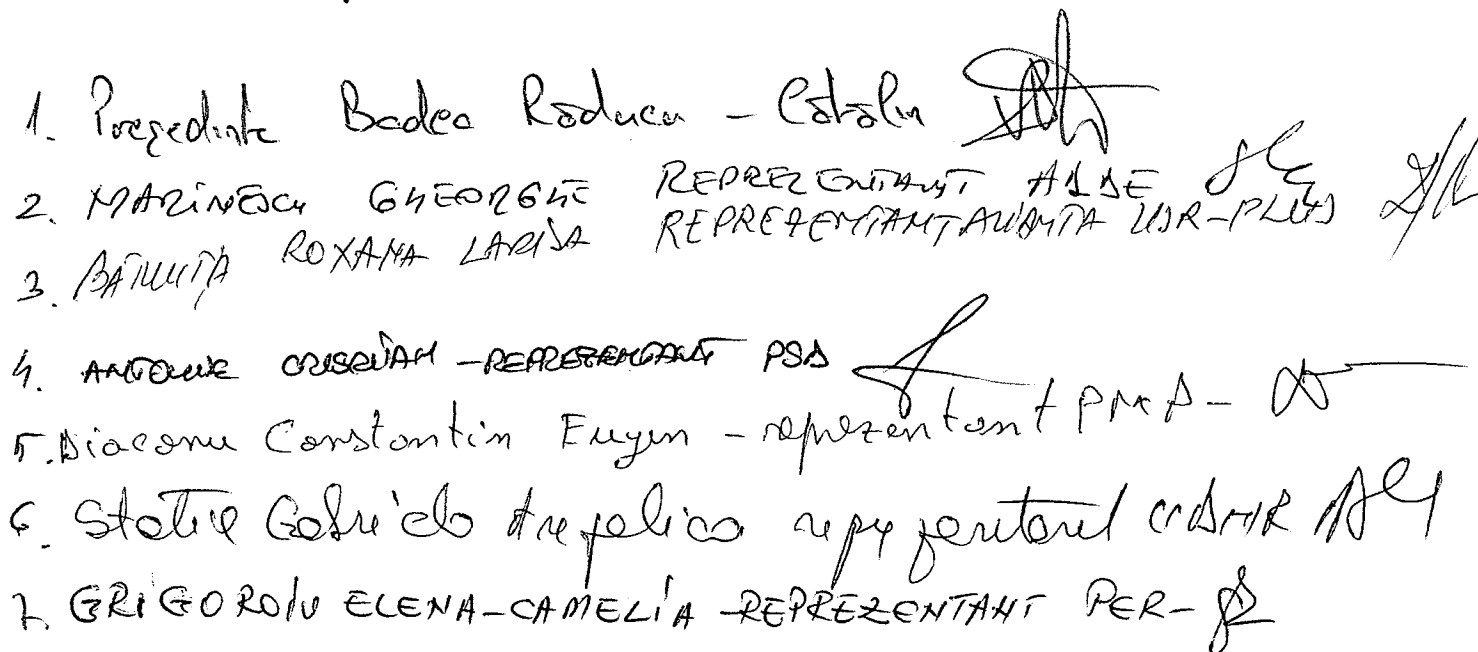 1. Președinte Badea Răducu - Cătălin
2. MARINESCU GHEORGHE REPREZENTANT ALDE
3. ROXANA LARISA REPREZENTANT ALIANȚA USR-PLUS
4. ANTONIE CRISTIAN - REPREZENTANT PSD
5. Diaconu Constantin Eugen - reprezentant PMP -
6. Gabriela Angelica reprezentantul
7. GRIGOROIU ELENA-CAMELIA - REPREZENTANT PER -